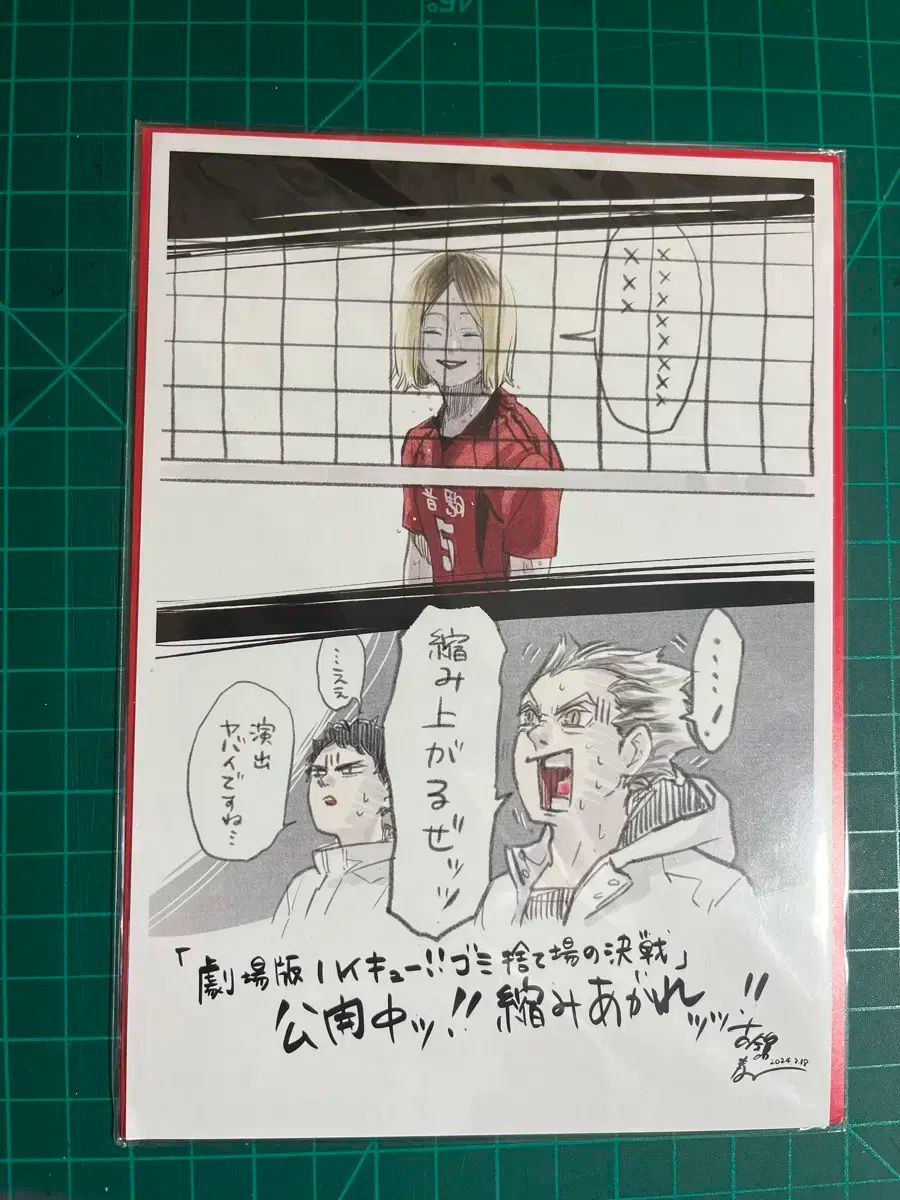 ×××××××
×××
音駒
5
……!
縮み上がるぜッッ
……スえ
演出
ヤバイですね…
「劇場版ハイキュー!!ゴミ捨て場の決戦」
公開中ッ!! 縮みあがれッッ!!
古舘
春一
2024.2.18
45°